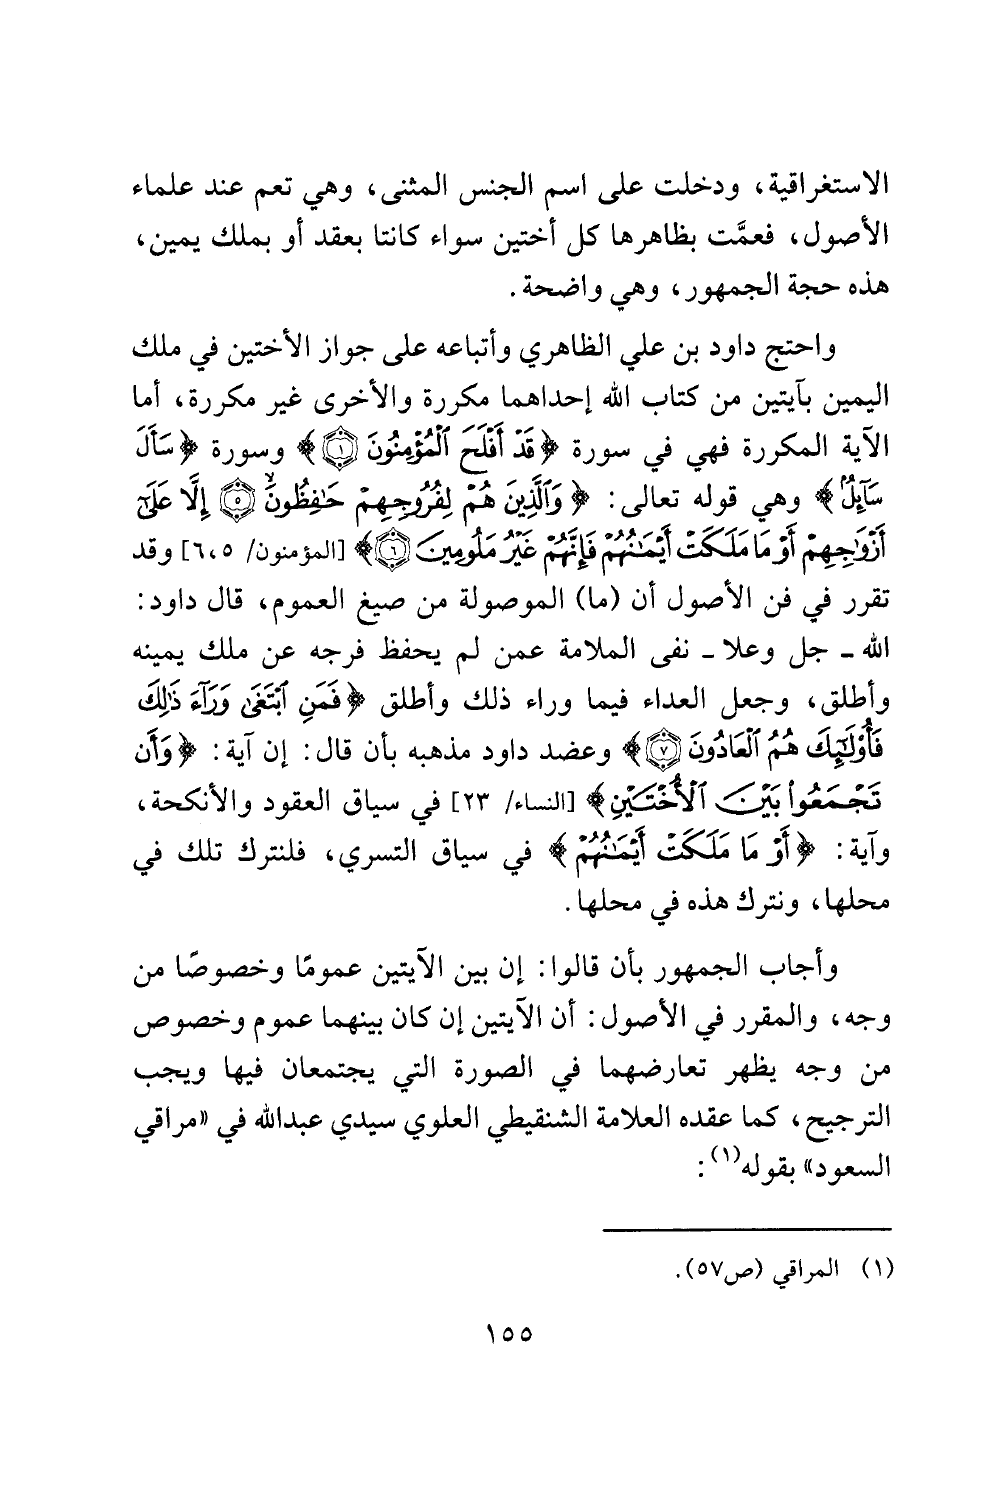 الاستغراقية، ودخلت على اسم الجنس المثنى، وهي تعم عند علماء
الأصول، فعمَّت بظاهرها كل أختين سواء كانتا بعقد أو بملك يمين،
هذه حجة الجمهور، وهي واضحة.
واحتج داود بن علي الظاهري وأتباعه على جواز الأختين في ملك
اليمين بآيتين من كتاب الله إحداهما مكررة والأخرى غير مكررة، أما
الآية المكررة فهي في سورة ﴿قَدْ أَفْلَحَ ٱلْمُؤْمِنُونَ ١﴾ وسورة ﴿سَأَلَ
سَآئِلٌۢ﴾ وهي قوله تعالى: ﴿وَٱلَّذِينَ هُمْ لِفُرُوجِهِمْ حَٰفِظُونَ ٥ إِلَّا عَلَىٰٓ
أَزْوَٰجِهِمْ أَوْ مَا مَلَكَتْ أَيْمَٰنُهُمْ فَإِنَّهُمْ غَيْرُ مَلُومِينَ ٦﴾ [المؤمنون/ ٦،٥] وقد
تقرر في فن الأصول أن (ما) الموصولة من صيغ العموم، قال داود:
الله ـ جل وعلا ـ نفى الملامة عمن لم يحفظ فرجه عن ملك يمينه
وأطلق، وجعل العداء فيما وراء ذلك وأطلق ﴿فَمَنِ ٱبْتَغَىٰ وَرَآءَ ذَٰلِكَ
فَأُو۟لَٰٓئِكَ هُمُ ٱلْعَادُونَ ٧﴾ وعضد داود مذهبه بأن قال: إن آية: ﴿وَأَن
تَجْمَعُوا۟ بَيْنَ ٱلْأُخْتَيْنِ﴾ [النساء/ ٢٣] في سياق العقود والأنكحة،
وآية: ﴿أَوْ مَا مَلَكَتْ أَيْمَٰنُهُمْ﴾ في سياق التسري، فلنترك تلك في
محلها، ونترك هذه في محلها.
وأجاب الجمهور بأن قالوا: إن بين الآيتين عمومًا وخصوصًا من
وجه، والمقرر في الأصول: أن الآيتين إن كان بينهما عموم وخصوص
من وجه يظهر تعارضهما في الصورة التي يجتمعان فيها ويجب
الترجيح، كما عقده العلامة الشنقيطي العلوي سيدي عبدالله في «مراقي
السعود» بقوله(١):
(١) المراقي (ص٥٧).
١٥٥